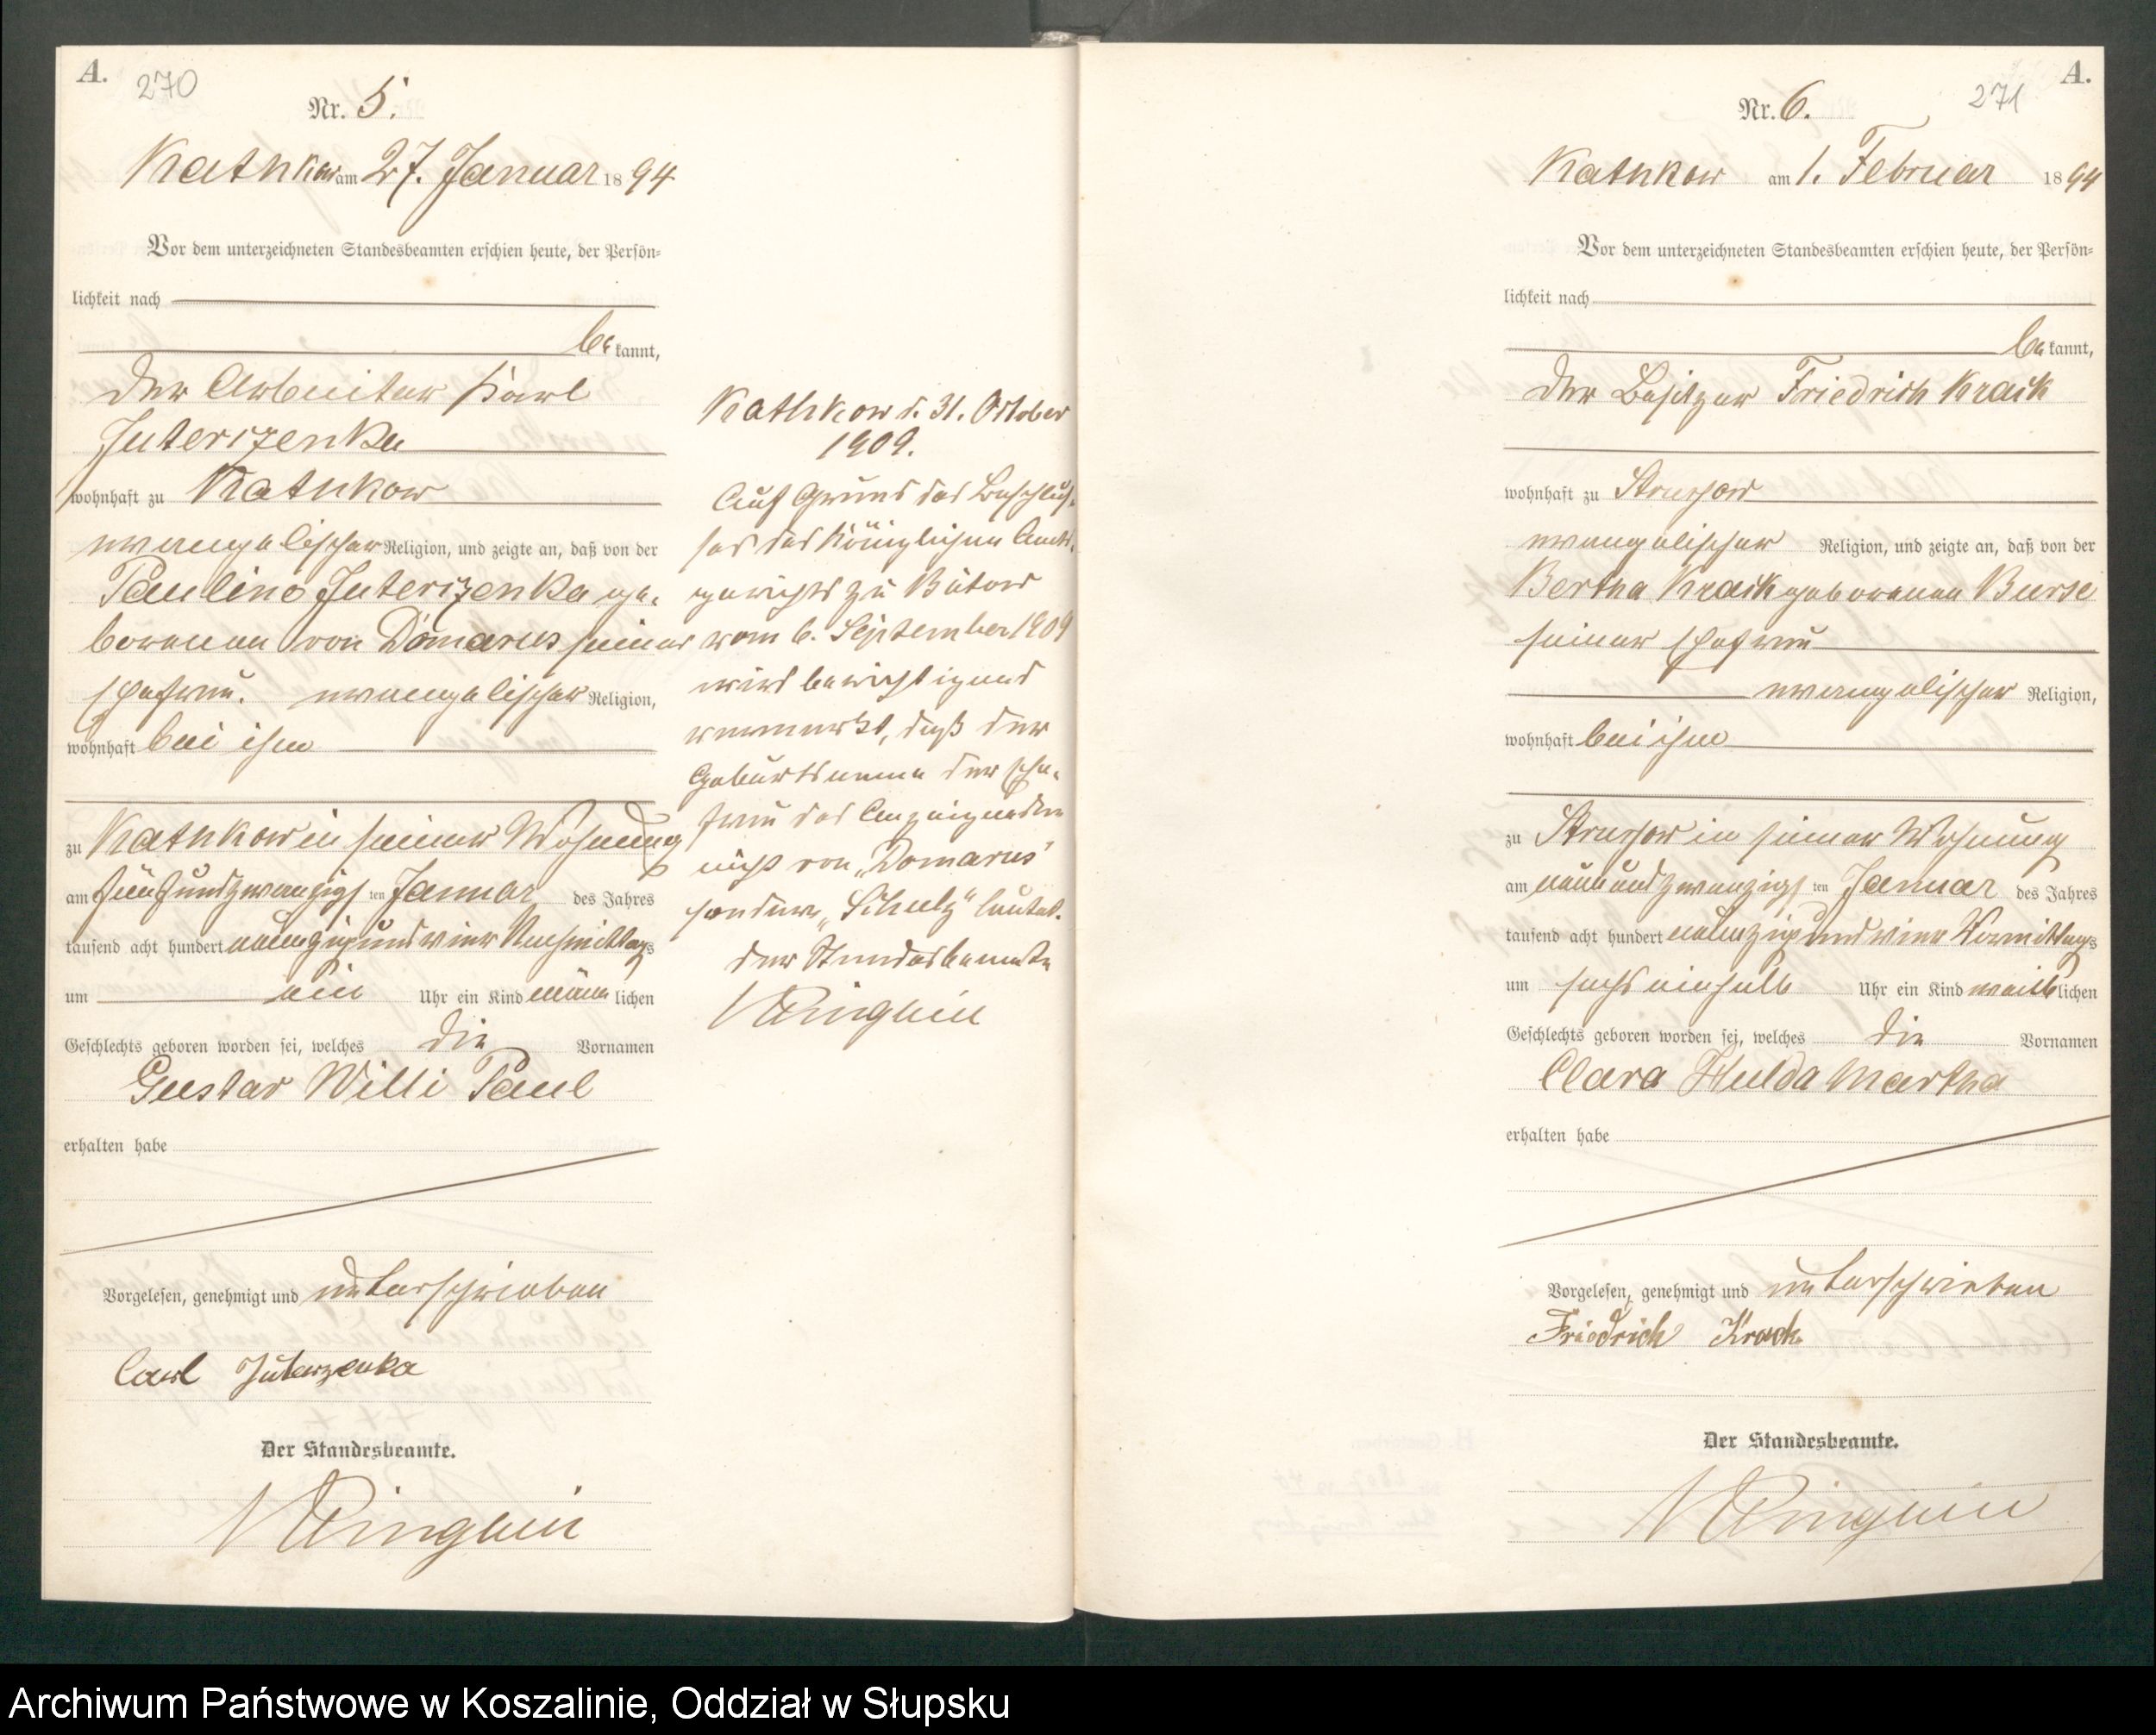 A.
270
Nr. 5.
Kathkow am 27. Januar 1894
Vor dem unterzeichneten Standesbeamten erschien heute, der Persön-
lichkeit nach
bekannt,
der Arbeiter Karl
Juterzenka
wohnhaft zu Kathkow
evangelischer Religion, und zeigte an, daß von der
Pauline Juterzenka ge-
borenen von Domarus seiner
Ehefrau. evangelischer Religion,
wohnhaft bei ihm
zu Kathkow in seiner Wohnung
am fünfundzwanzigsten Januar des Jahres
tausend acht hundert neunzig und vier Nachmittags
um ein Uhr ein Kind männlichen
Geschlechts geboren worden sei, welches die Vornamen
Gustav Willi Paul
erhalten habe
Vorgelesen, genehmigt und unterschrieben
Carl Juterzenka
Der Standesbeamte.
Kathkow d. 31. October
1909.
Auf Grund des Beschlus-
ses des Königlichen Amts-
gerichts zu Bütow
vom 6. September 1909
wird berichtigend
vermerkt, daß der
Geburtsname der Ehe-
frau des Anzeigenden
nicht von „Domarus“
sondern „Schulz“ lautet.
Der Standesbeamte
A.
271
Nr. 6.
Kathkow am 1. Februar 1894
Vor dem unterzeichneten Standesbeamten erschien heute, der Persön-
lichkeit nach
bekannt,
der Besitzer Friedrich Krack
wohnhaft zu Strussow
evangelischer Religion, und zeigte an, daß von der
Bertha Krack geborenen Burse
seiner Ehefrau
evangelischer Religion,
wohnhaft bei ihm
zu Strussow in seiner Wohnung
am neunundzwanzigsten Januar des Jahres
tausend acht hundert neunzig und vier Vormittags
um sechs einhalb Uhr ein Kind weiblichen
Geschlechts geboren worden sei, welches die Vornamen
Clara Hulda Martha
erhalten habe
Vorgelesen, genehmigt und unterschrieben
Friedrich Krack
Der Standesbeamte.
Archiwum Państwowe w Koszalinie, Oddział w Słupsku